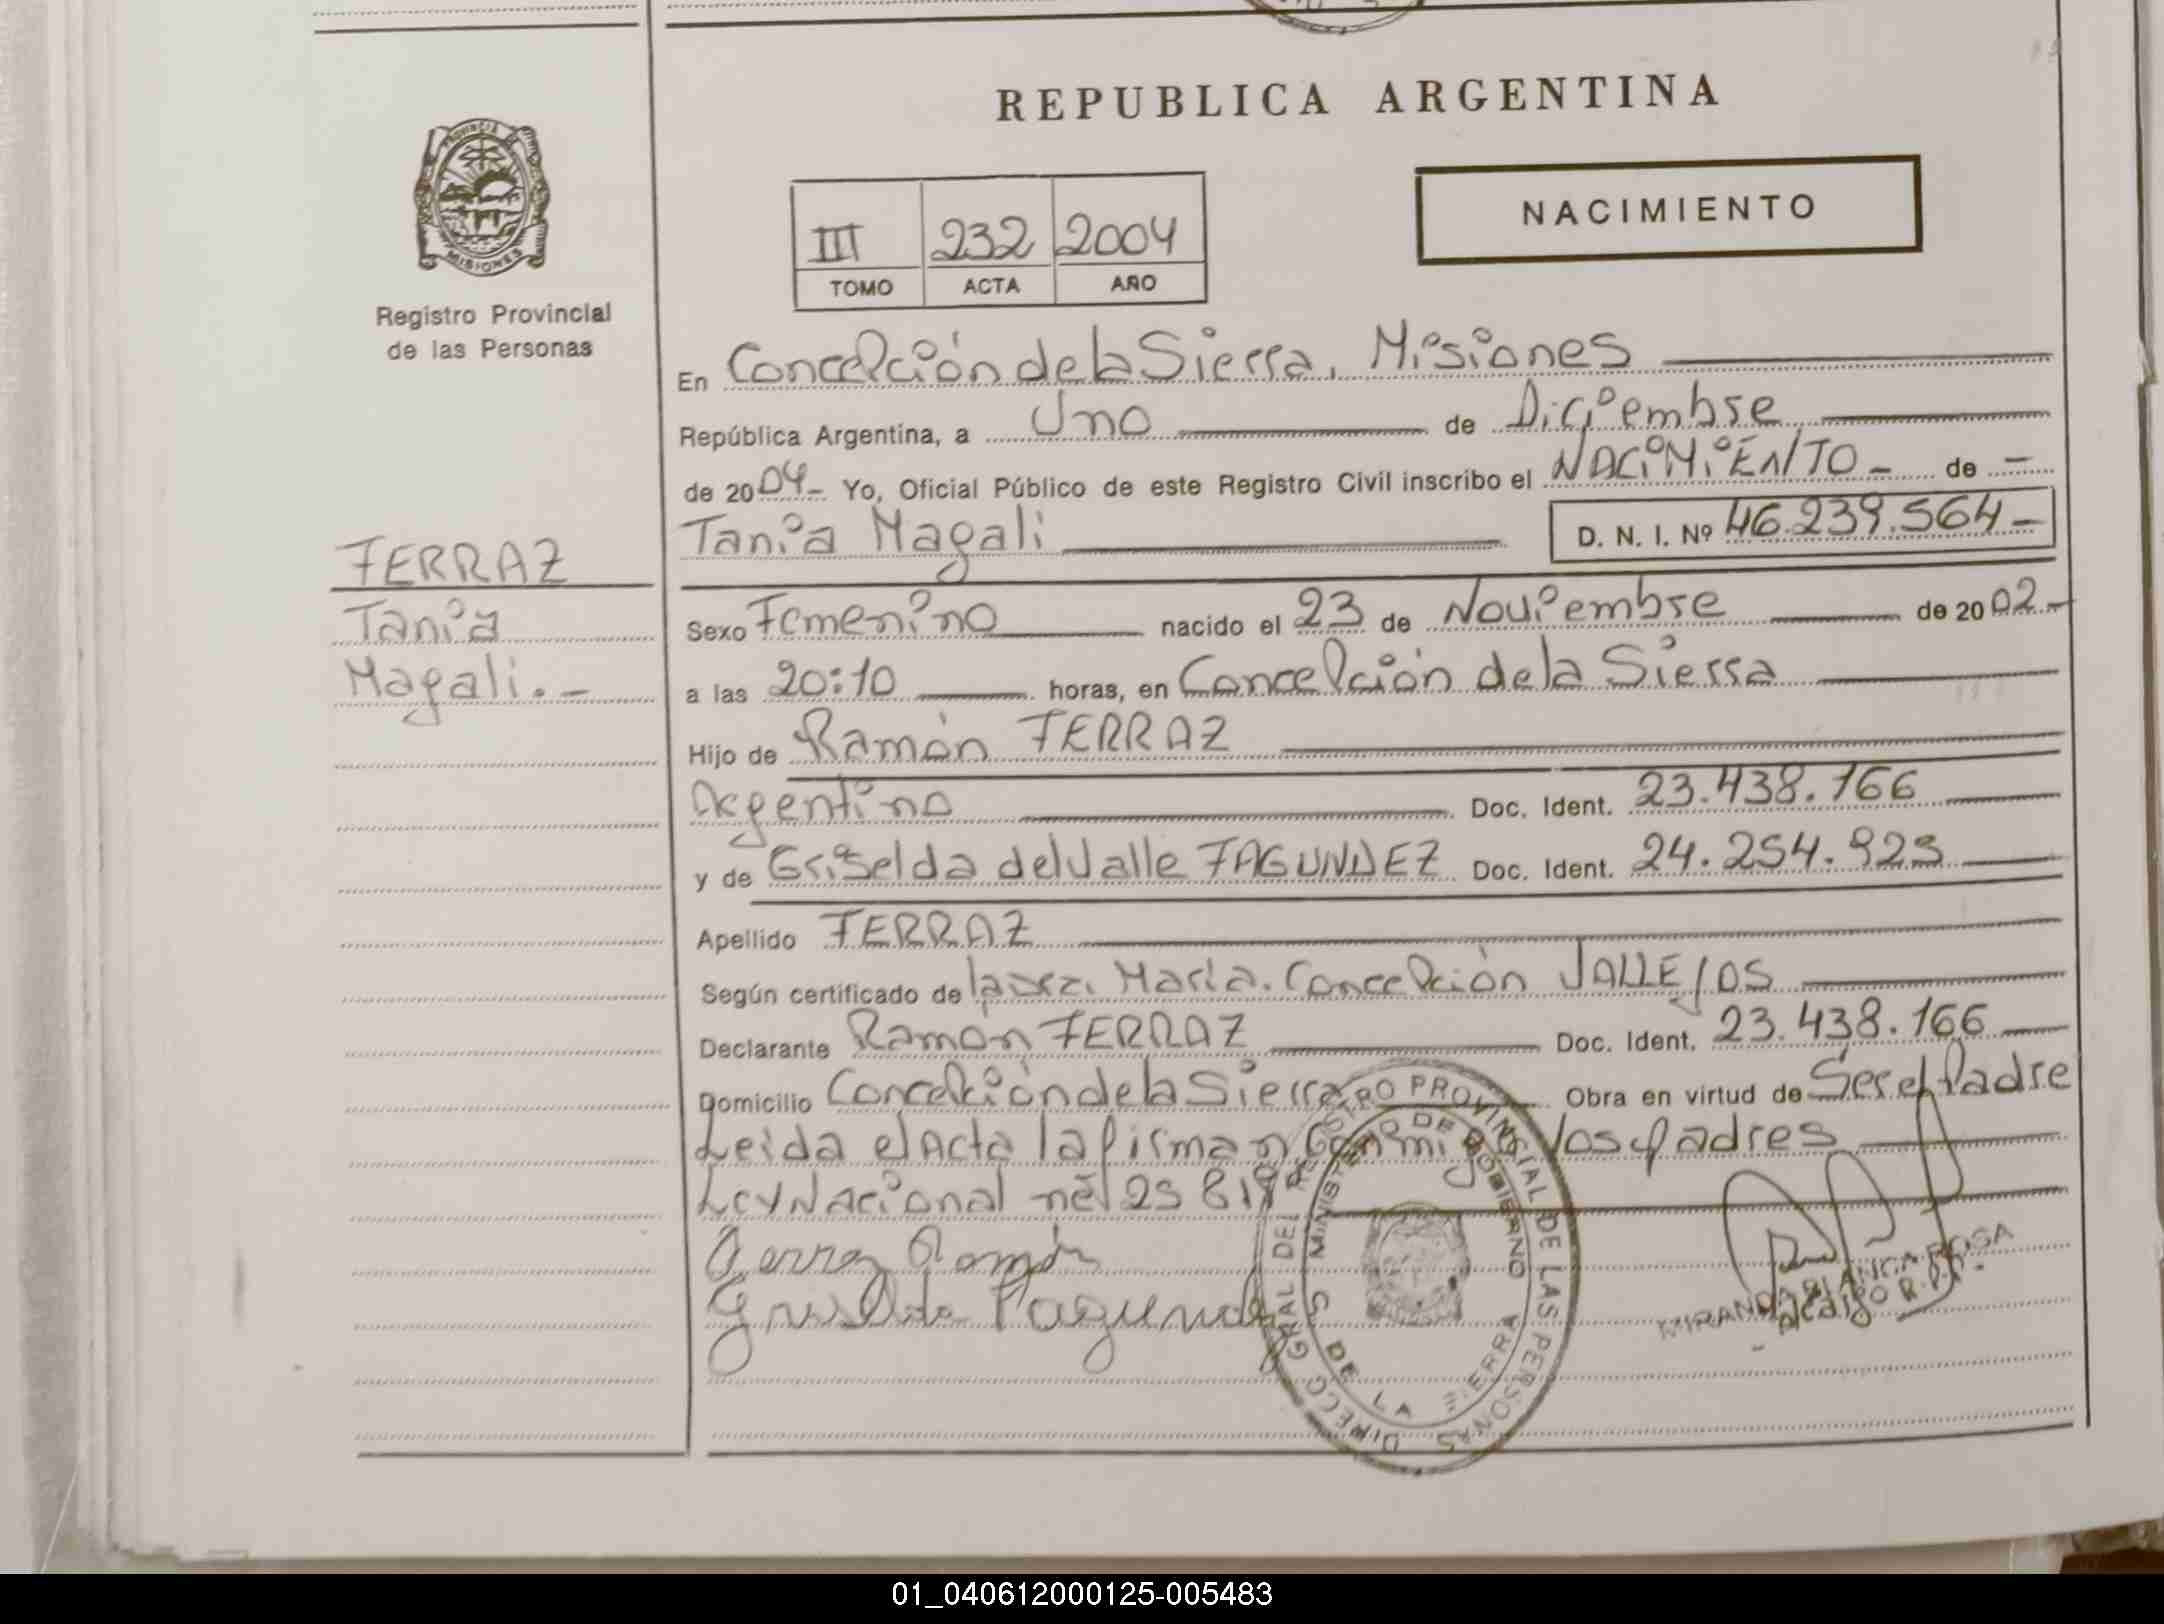 REPUBLICA ARGENTINA
PROVINCIA DE
MISIONES
Registro Provincial
de las Personas
NACIMIENTO
III 232 2004
TOMO ACTA AÑO
En Concepción de la Sierra, Misiones
República Argentina, a Uno de Diciembre
de 2004- Yo, Oficial Público de este Registro Civil inscribo el NACiMiENTO - de -
Tania Magali D. N. I. Nº 46.239.564-
FERRAZ
Tania
Magali.-
Sexo Femenino nacido el 23 de Noviembre de 2002-
a las 20:10 horas, en Concepción de la Sierra
Hijo de Ramón FERRAZ
Argentino Doc. Ident. 23.438.166
y de Griselda del Valle FAGUNDEZ Doc. Ident. 24.254.923
Apellido FERRAZ
Según certificado de Laura. María. Concepción VALLEJOS
Declarante Ramón FERRAZ Doc. Ident. 23.438.166
Domicilio Concepción de la Sierra Obra en virtud de Ser el Padre
Leida el Acta la firman conmigo los padres
Ley Nacional nº 25 819
Ferraz Ramón
Griselda Fagundez
DIRECC GRAL DEL REGISTRO PROVINCIAL DE LAS PERSONAS
MINISTERIO DE GOBIERNO
S DE LA SIERRA
MIRANDA BLANCA ROSA
01_040612000125-005483